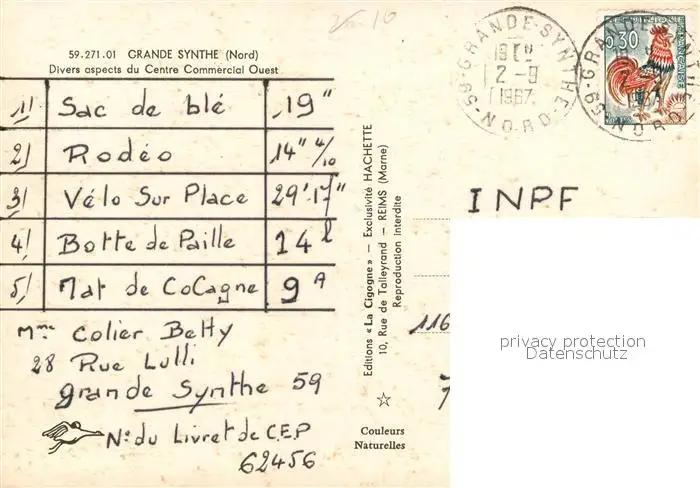 25-10
59.271.01 GRANDE SYNTHE (Nord)
Divers aspects du Centre Commercial Ouest
1) Sac de blé 19"
2) Rodéo 14" 4/10
3) Vélo Sur Place 29'17"
4) Botte de Paille 14 l
5) Mat de CoCagne 9 A
Mme Colier Betty
28 Rue Lulli
grande Synthe 59
N° du Livret de C.E.P
62456
Editions « La Cigogne » — Exclusivité HACHETTE
10, Rue de Talleyrand — REIMS (Marne)
Reproduction interdite
Couleurs
Naturelles
59-GRANDE-SYNTHE
12-9
1967
NORD
0,30
GRANDE-SYNTHE
59 NORD
INPF
116
7
privacy protection
Datenschutz